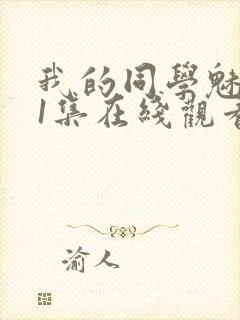 我的同學魅
1集在綫觀看
渝人